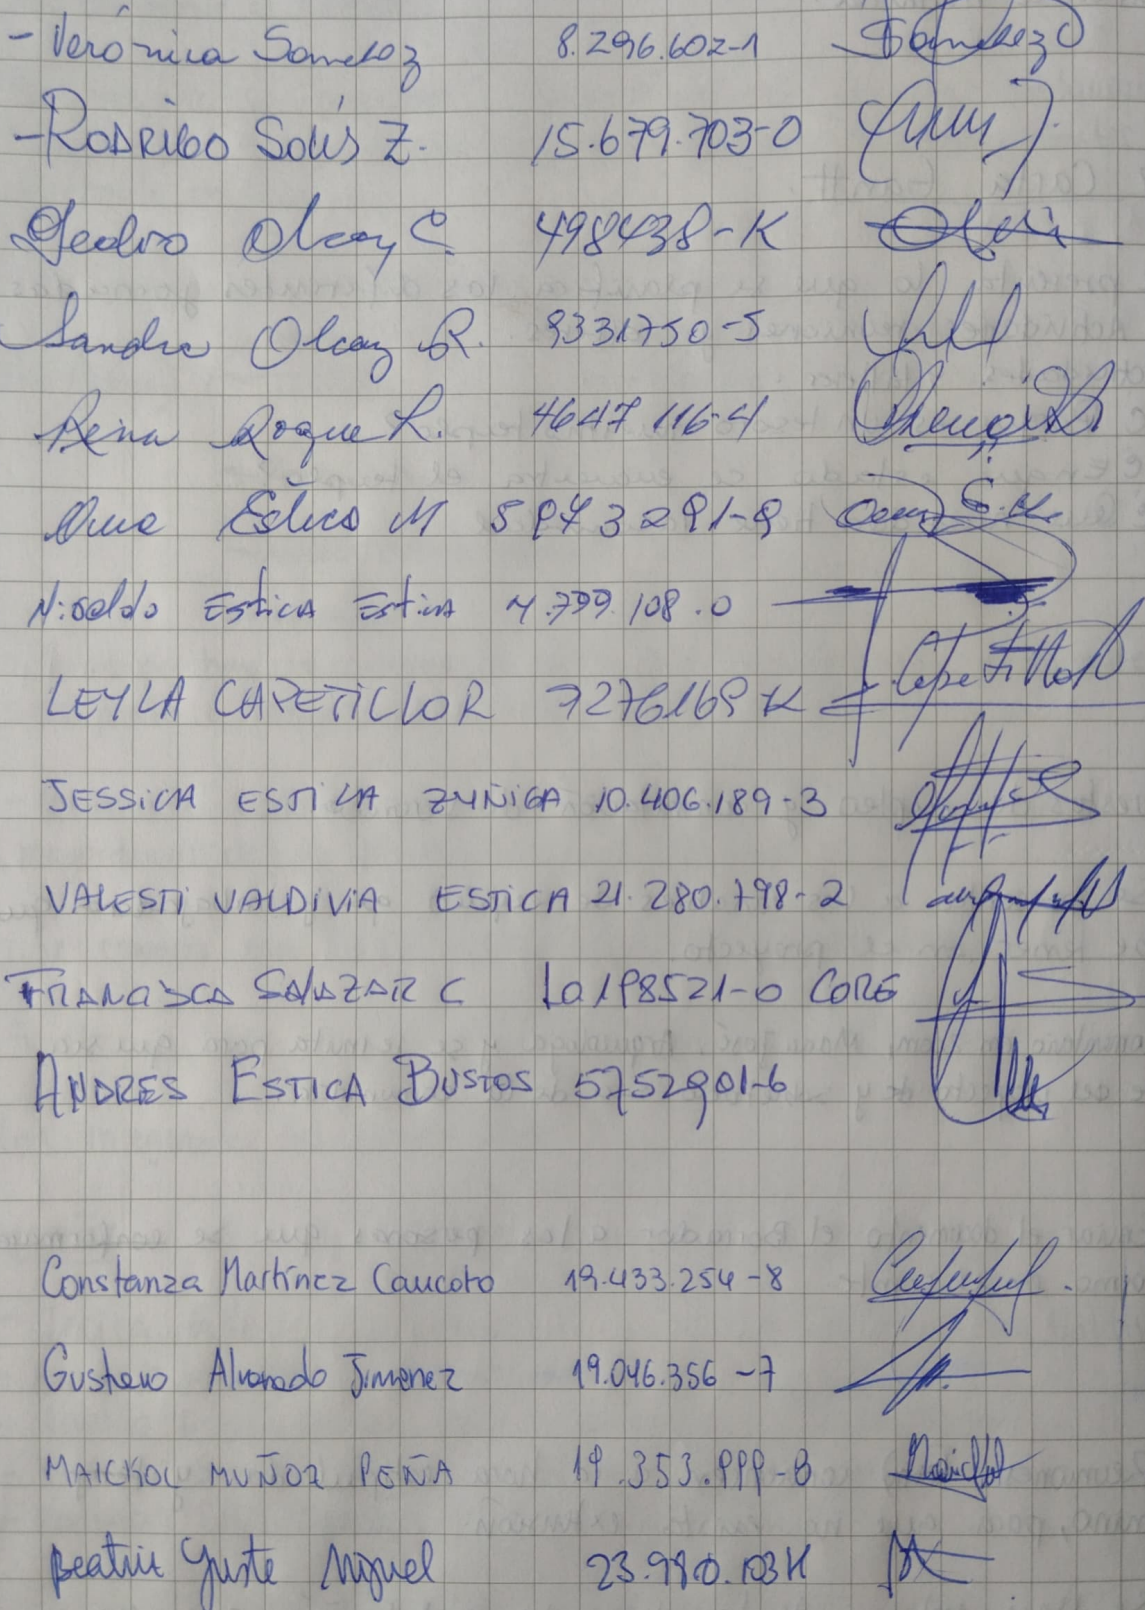 - Verónica Sanchez 8.296.602-1 Sanchez
- RODRIGO SOLÍS Z. 15.679.703-0
Pedro Olcay C. 498438-K
Sandra Olcay R. 9331750-5
Reina Roque R. 4647116-4
Ana Estica M 5973291-9
Nivaldo Estica Estica 4.799.108.0
LEYLA CAPETILLO R 7276169 K Capetillo
JESSICA ESTICA ZUÑIGA 10.406.189-3
VALESTI VALDIVIA ESTICA 21.280.798-2
FRANCISCA SALAZAR C 10198521-0 CORE
ANDRES ESTICA BUSTOS 5752901-6
Constanza Martínez Caucoto 19.433.254-8
Gustavo Alvarado Jimenez 19.046.356-7
MAICKOL MUÑOZ PEÑA 19.353.999-8
Beatriz Yuste Miguel 23.980.103K